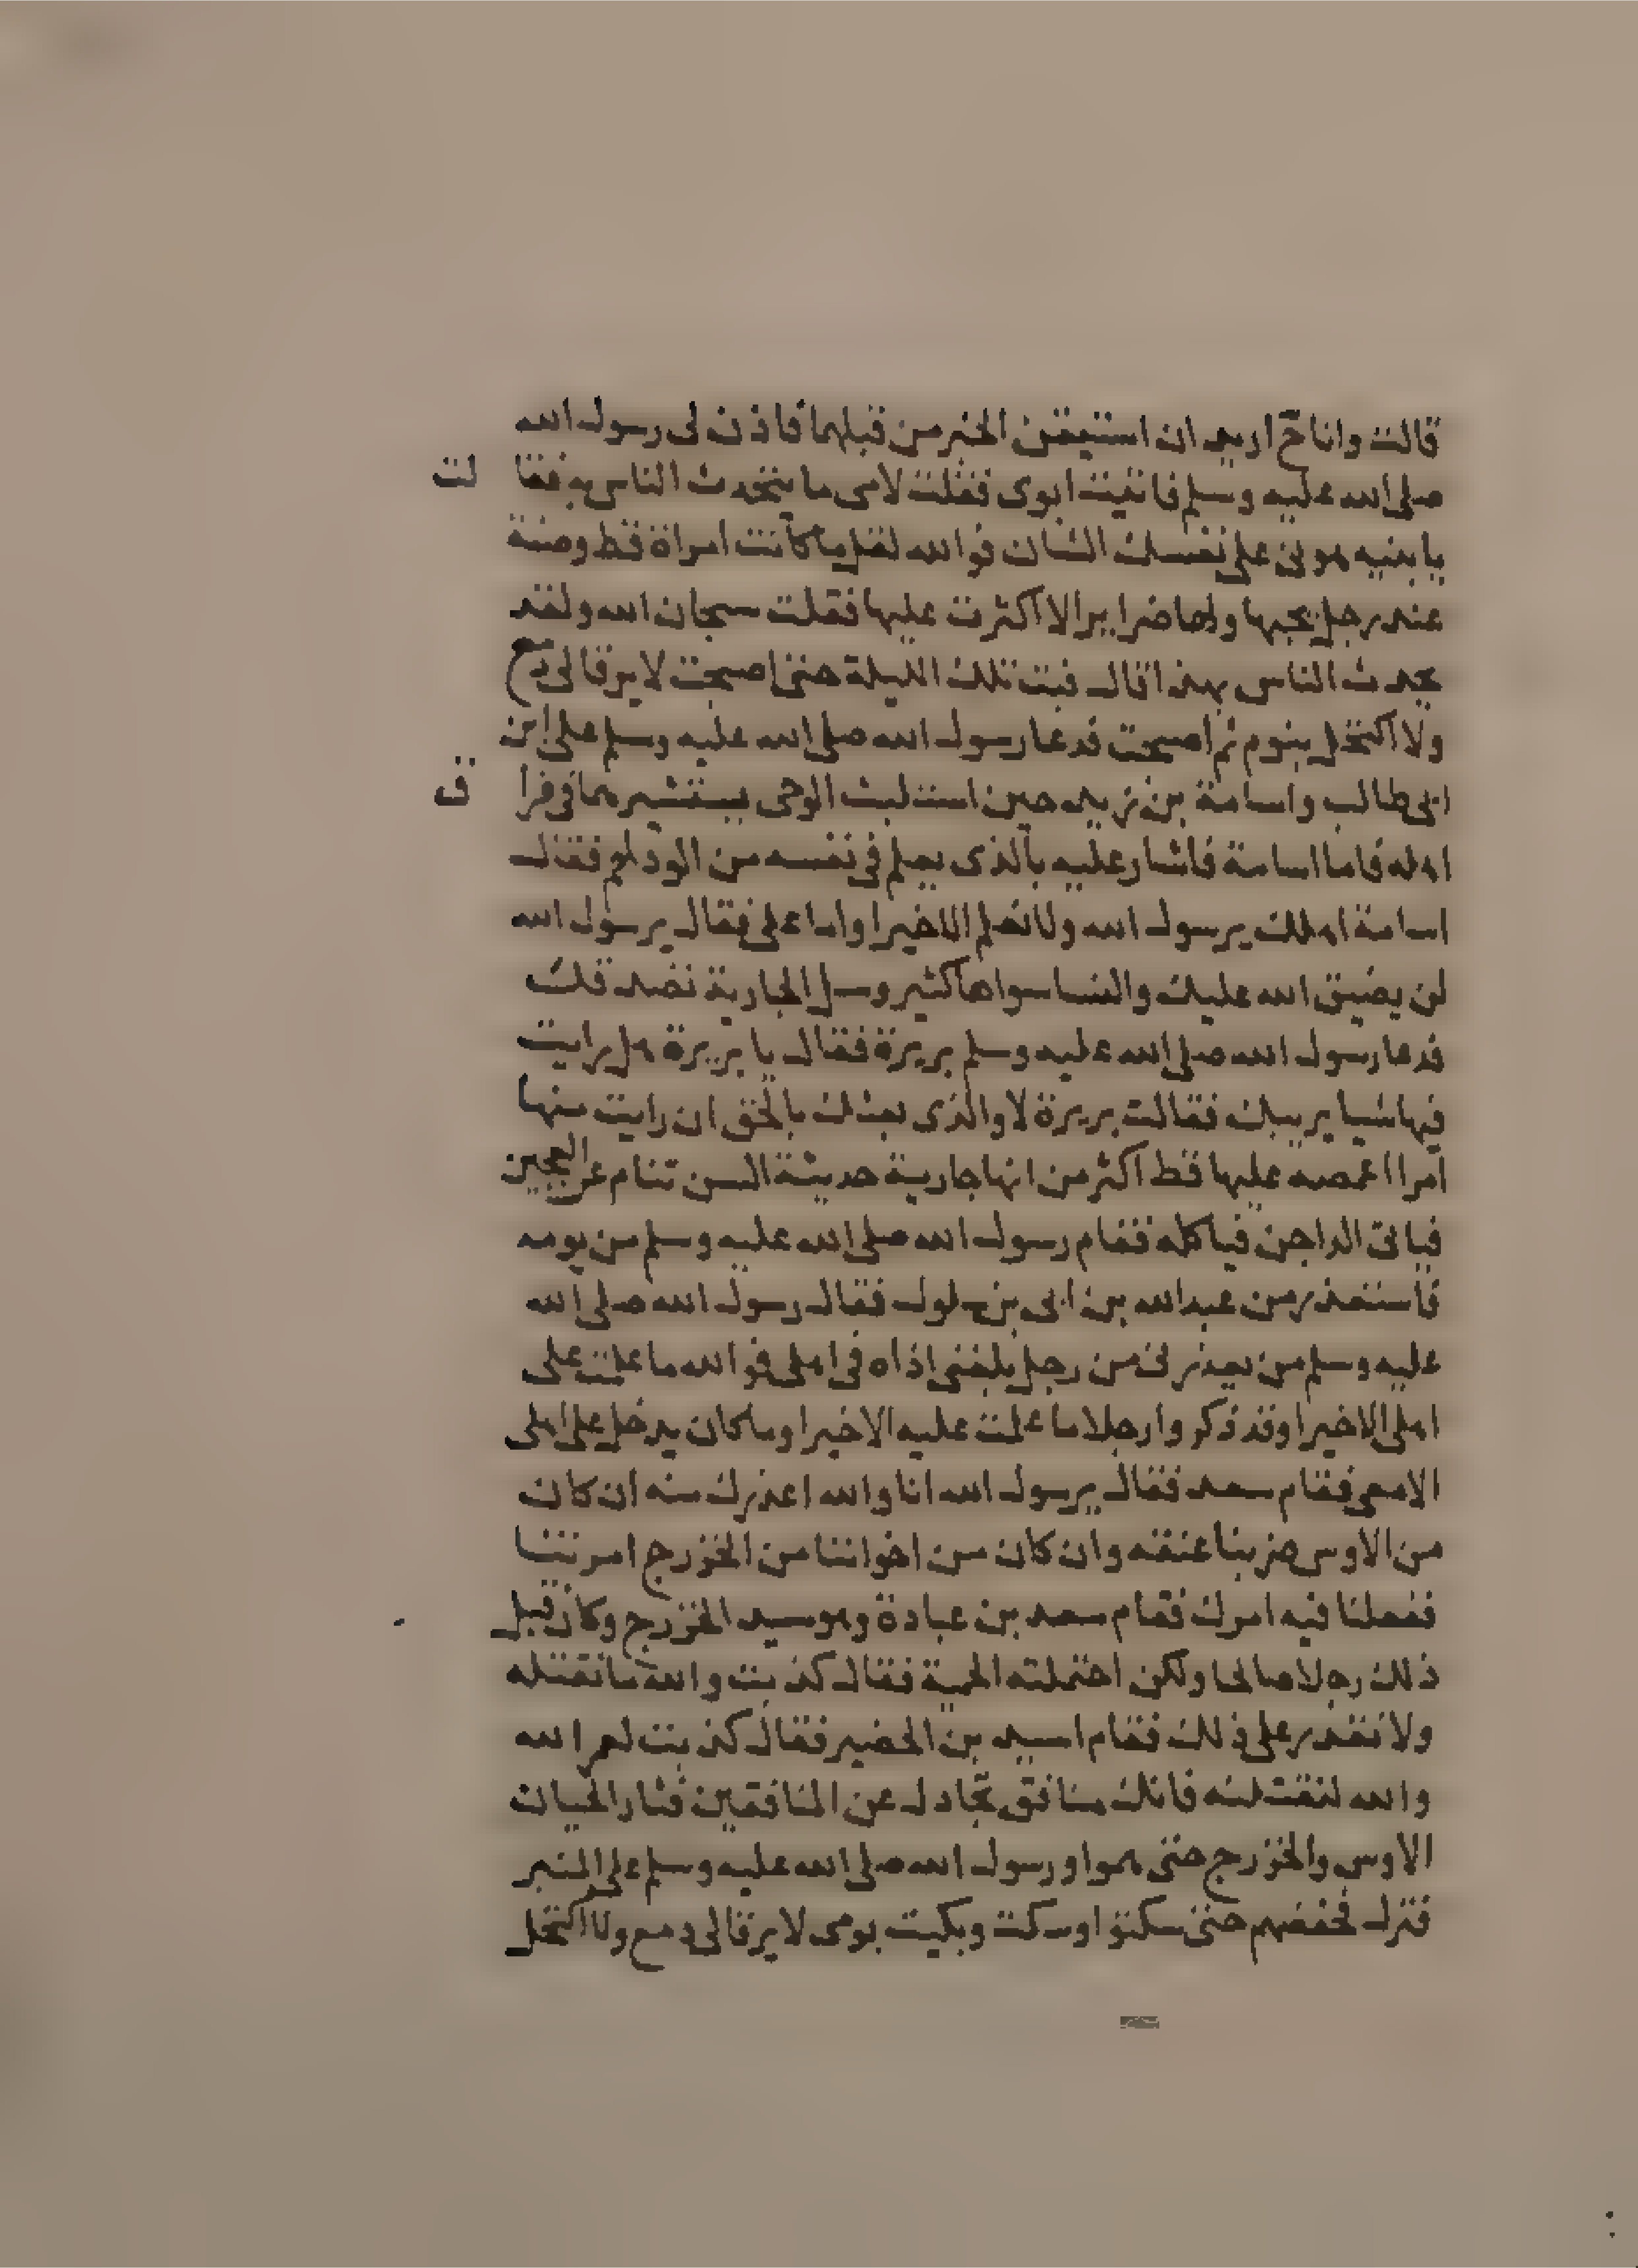 قالت وانا ح اريد ان استيقن الخبر من قبلهما فاذن لى رسول الله
صلى الله عليه وسلم فاتيت ابوى فقلت لامى ما يتحدث الناس به فقا لت
يا بنيه هونى على نفسك الشان فوالله لقل ما كانت امراة قط وضية
عند رجل يحبها ولها ضراير الا اكثرت عليها فقلت سبحان الله ولقد
يحدث الناس بهذا قال فبت تلك الليلة حتى اصبحت لا يرقا لى دمع
ولا اكتحل بنوم ثم اصبحت فدعا رسول الله صلى الله عليه وسلم على ابن
ابى طالب واسامة بن زيد حين استلبث الوحى يستشيرهما فى فرا ق
اهله فاما اسامة فاشار عليه بالذى يعلم فى نفسه من الود لهم فقال
اسامة اهلك يرسول الله ولا نعلم الا خيرا واما على فقال يرسول الله
لن يضيق الله عليك والنسا سواها كثير وسل الجارية تصدقك
فدعا رسول الله صلى الله عليه وسلم بريرة فقال يا بريرة هل رايت
فيها شيا يريبك فقالت بريرة لا والذى بعثك بالحق ان رايت منها
امرا اغمصه عليها قط اكثر من انها جارية حديثة السن تنام عن العجين
فياتى الداجن فياكله فقام رسول الله صلى الله عليه وسلم من يومه
فاستعذر من عبد الله بن ابى بن سلول فقال رسول الله صلى الله
عليه وسلم من يعذرنى من رجل بلغنى اذاه فى اهلى فوالله ما علمت على
اهلى الا خيرا وقد ذكروا رجلا ما علمت عليه الا خيرا وما كان يدخل على اهلى
الا معى فقام سعد فقال يرسول الله انا والله اعذرك منه ان كان
من الاوس ضربنا عنقه وان كان من اخواننا من الخزرج امرتنا
ففعلنا فيه امرك فقام سعد بن عبادة وهو سيد الخزرج وكان قبل
ذلك رجلا صالحا ولكن احتملته الحمية فقال كذبت والله ما تقتله
ولا تقدر على ذلك فقام اسيد بن الحضير فقال كذبت لعمر الله
والله لنقتلنه فانك منافق تجادل عن المنافقين فثار الحيان
الاوس والخزرج حتى هموا ورسول الله صلى الله عليه وسلم على المنبر
فنزل فخفضهم حتى سكتوا وسكت وبكيت يومى لا يرقا لى دمع ولا اكتحل